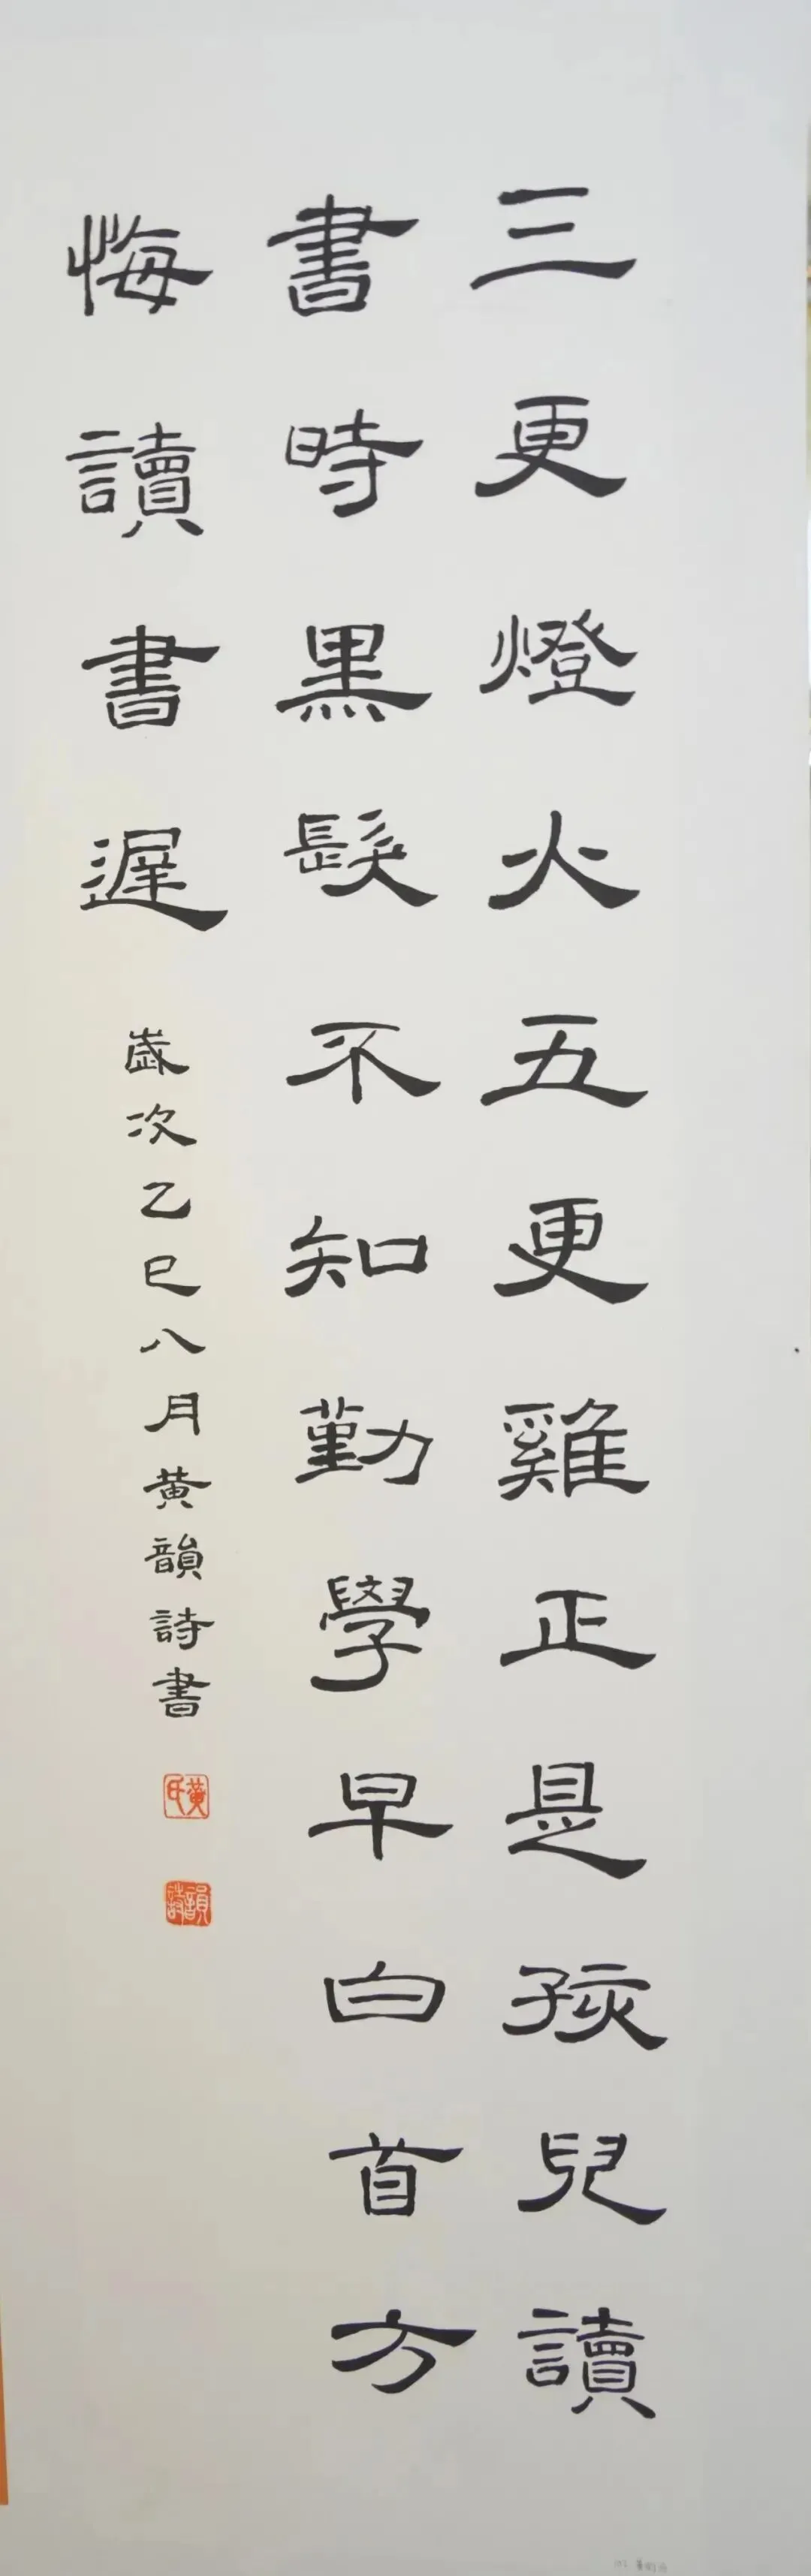 三更燈火五更雞正是孩兒讀
書時黑髮不知勤學早白首方
悔讀書遲
歲次乙巳八月黃韻詩書
黃氏
韻詩